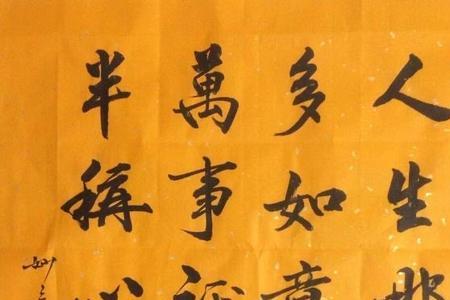 人生哪
多如意
萬事
半稱心